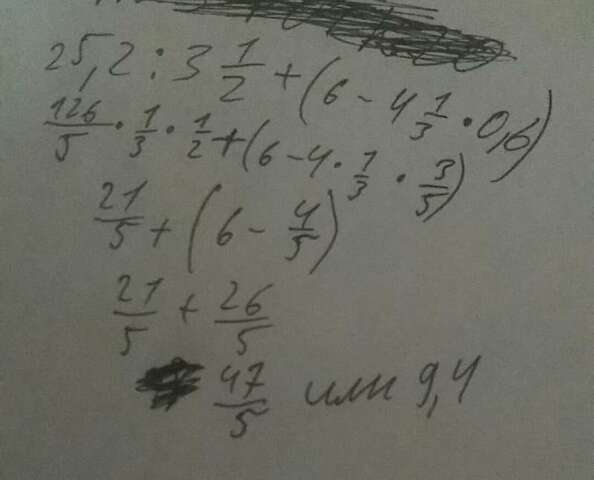 25,2 : 3 1/2 + (6 - 4 1/3 · 0,6)
126/5 · 1/3 · 1/2 + (6 - 4 · 1/3 · 3/5)
21/5 + (6 - 4/5)
21/5 + 26/5
47/5 или 9,4